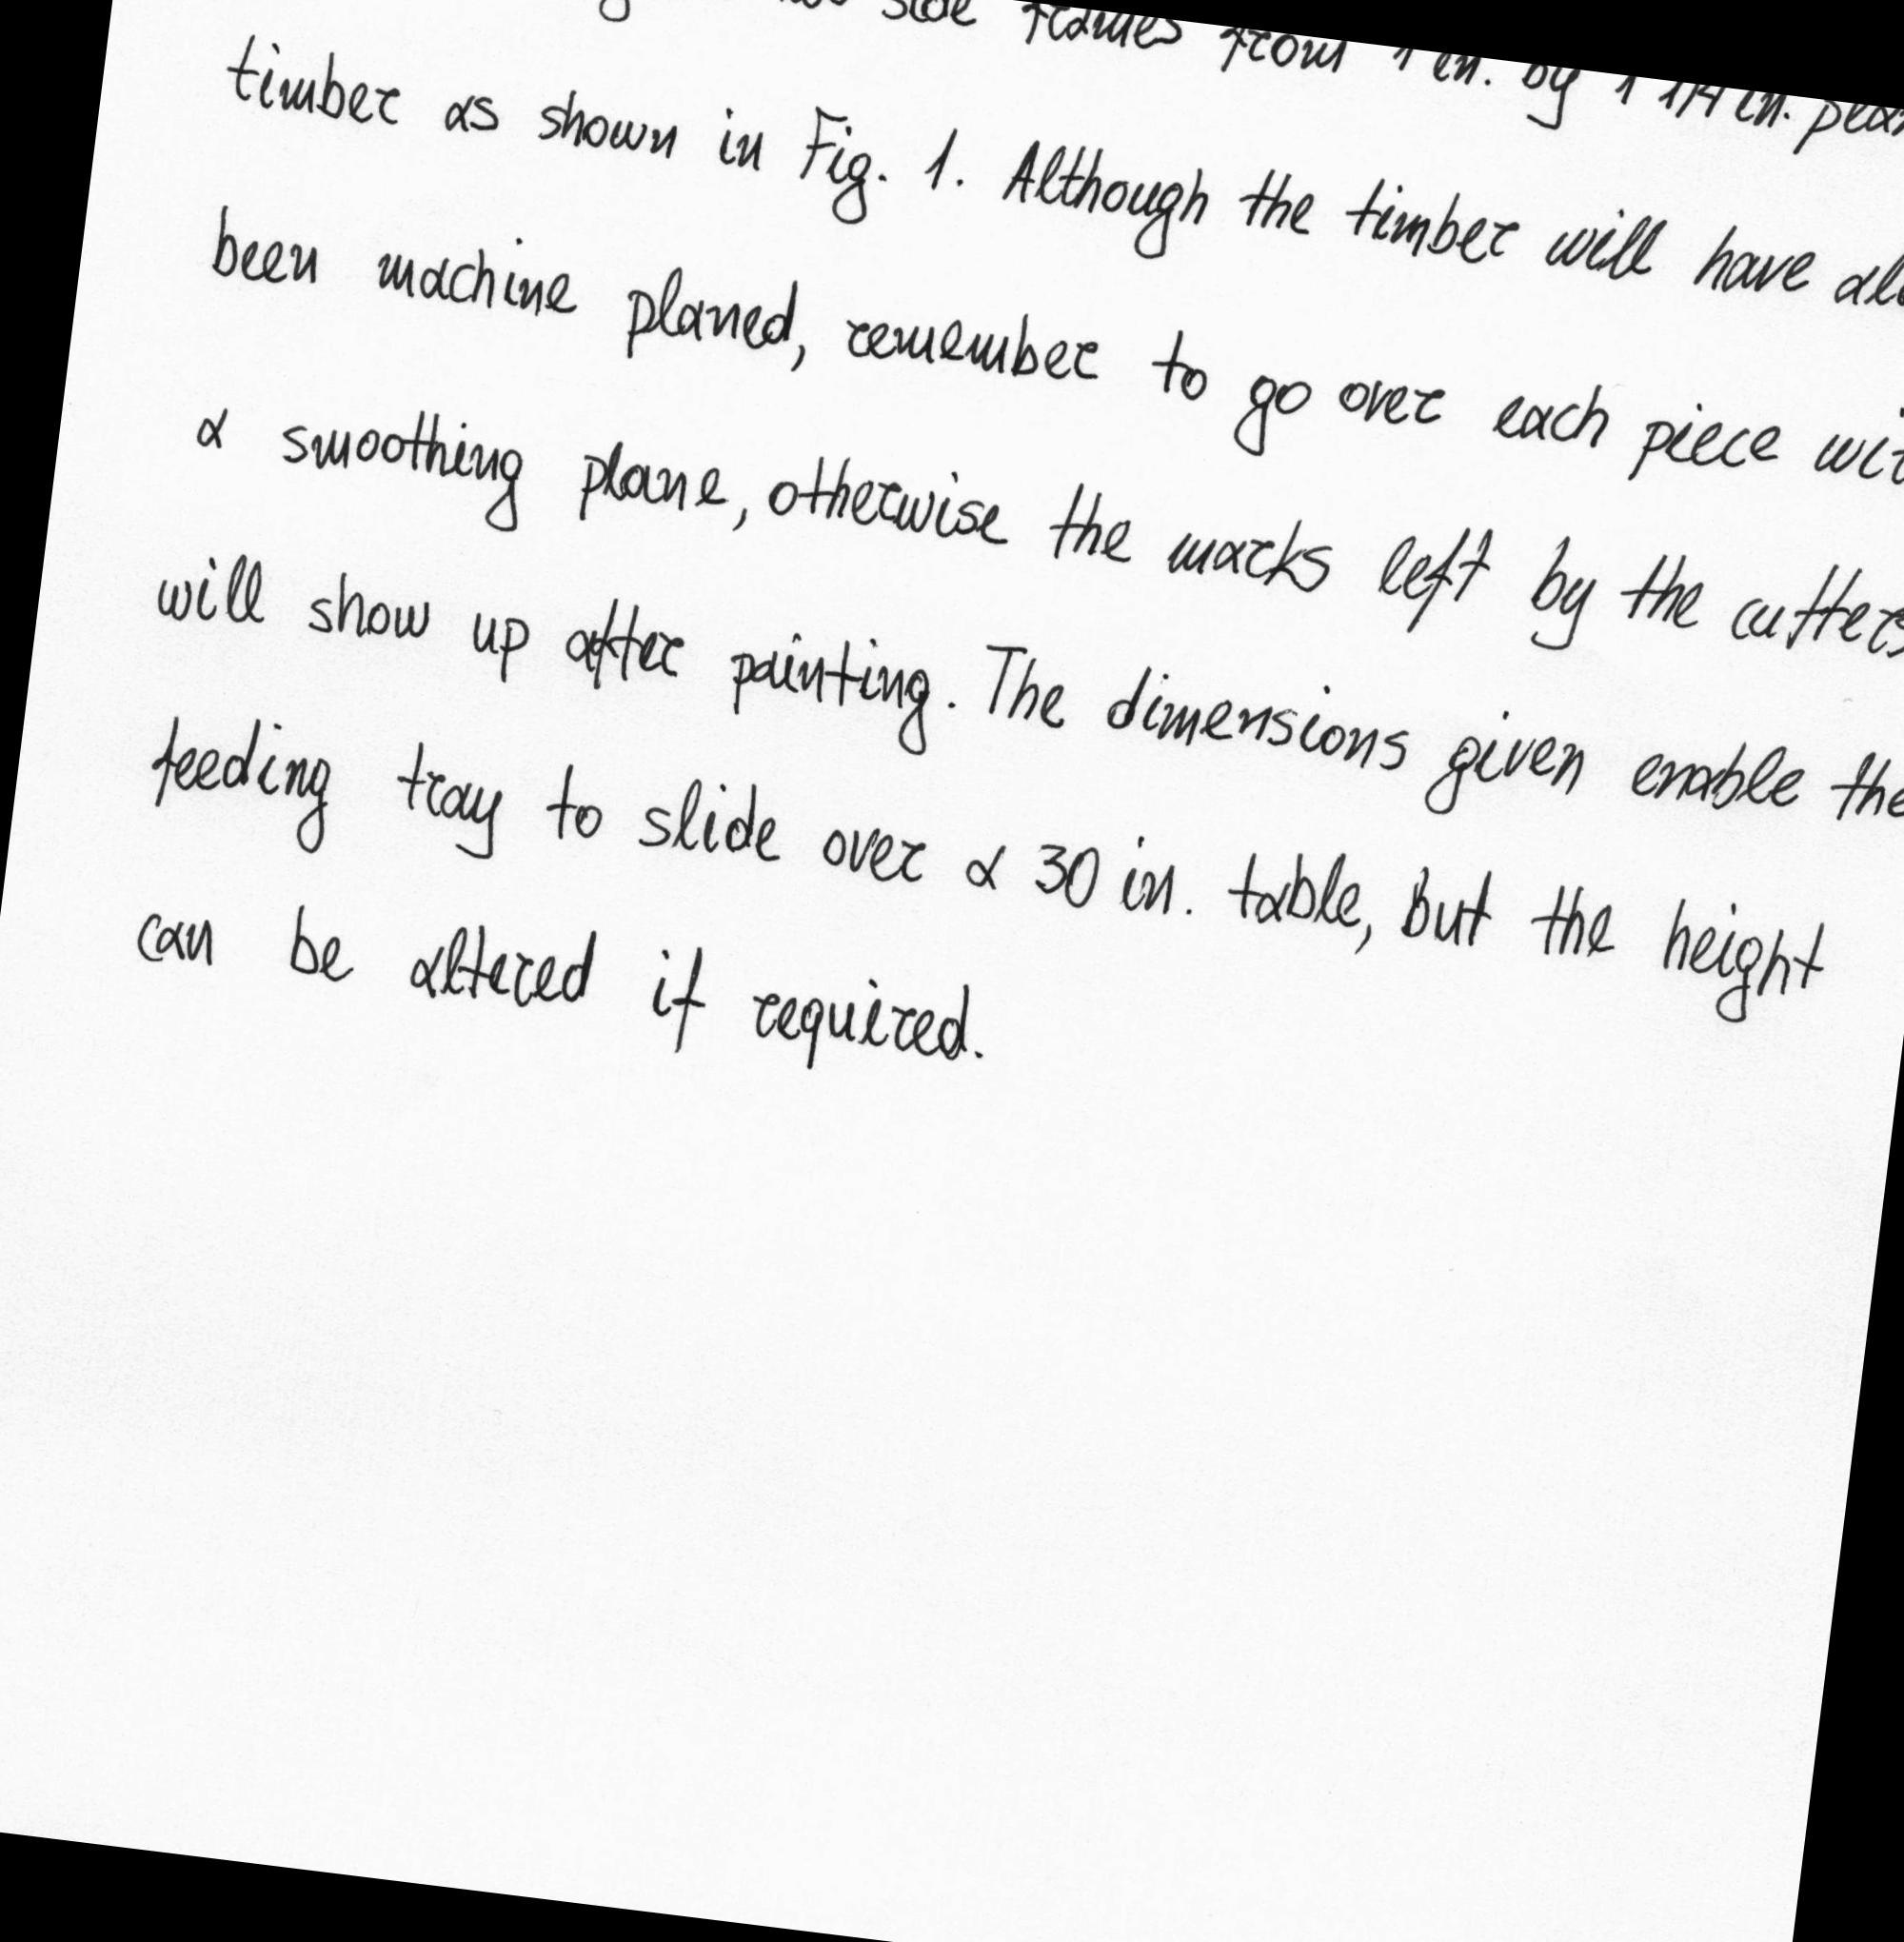 side frames from 1 in. by 1 1/4 in.
timber as shown in Fig. 1. Although the timber will have
been machine planed, remember to go over each piece
a smoothing plane, otherwise the marks left by the cutters
will show up after painting. The dimensions given enable the
feeding tray to slide over a 30 in. table, but the height
can be altered if required.